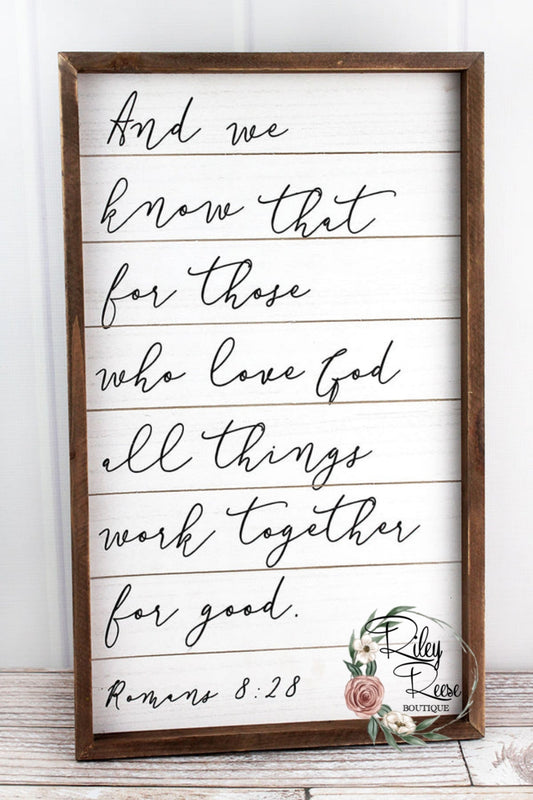 And we
know that
for those
who love God
all things
work together
for good.
Romans 8:28
Riley
Reese
BOUTIQUE